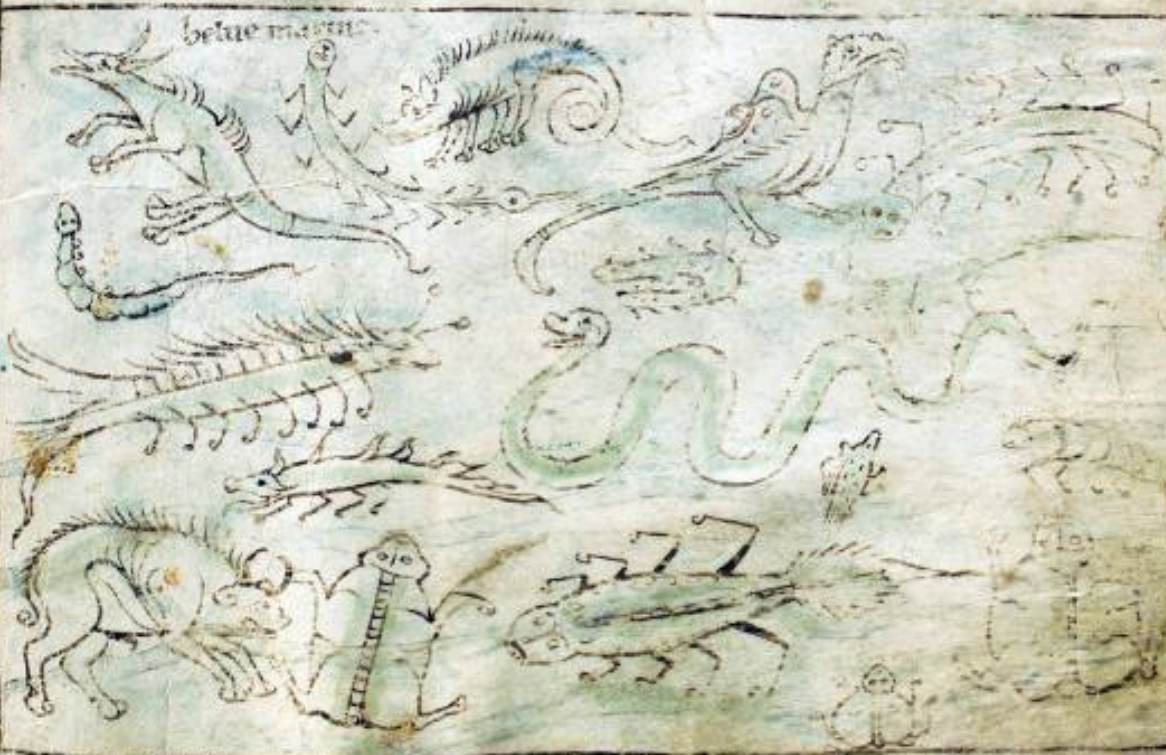 belue marine.